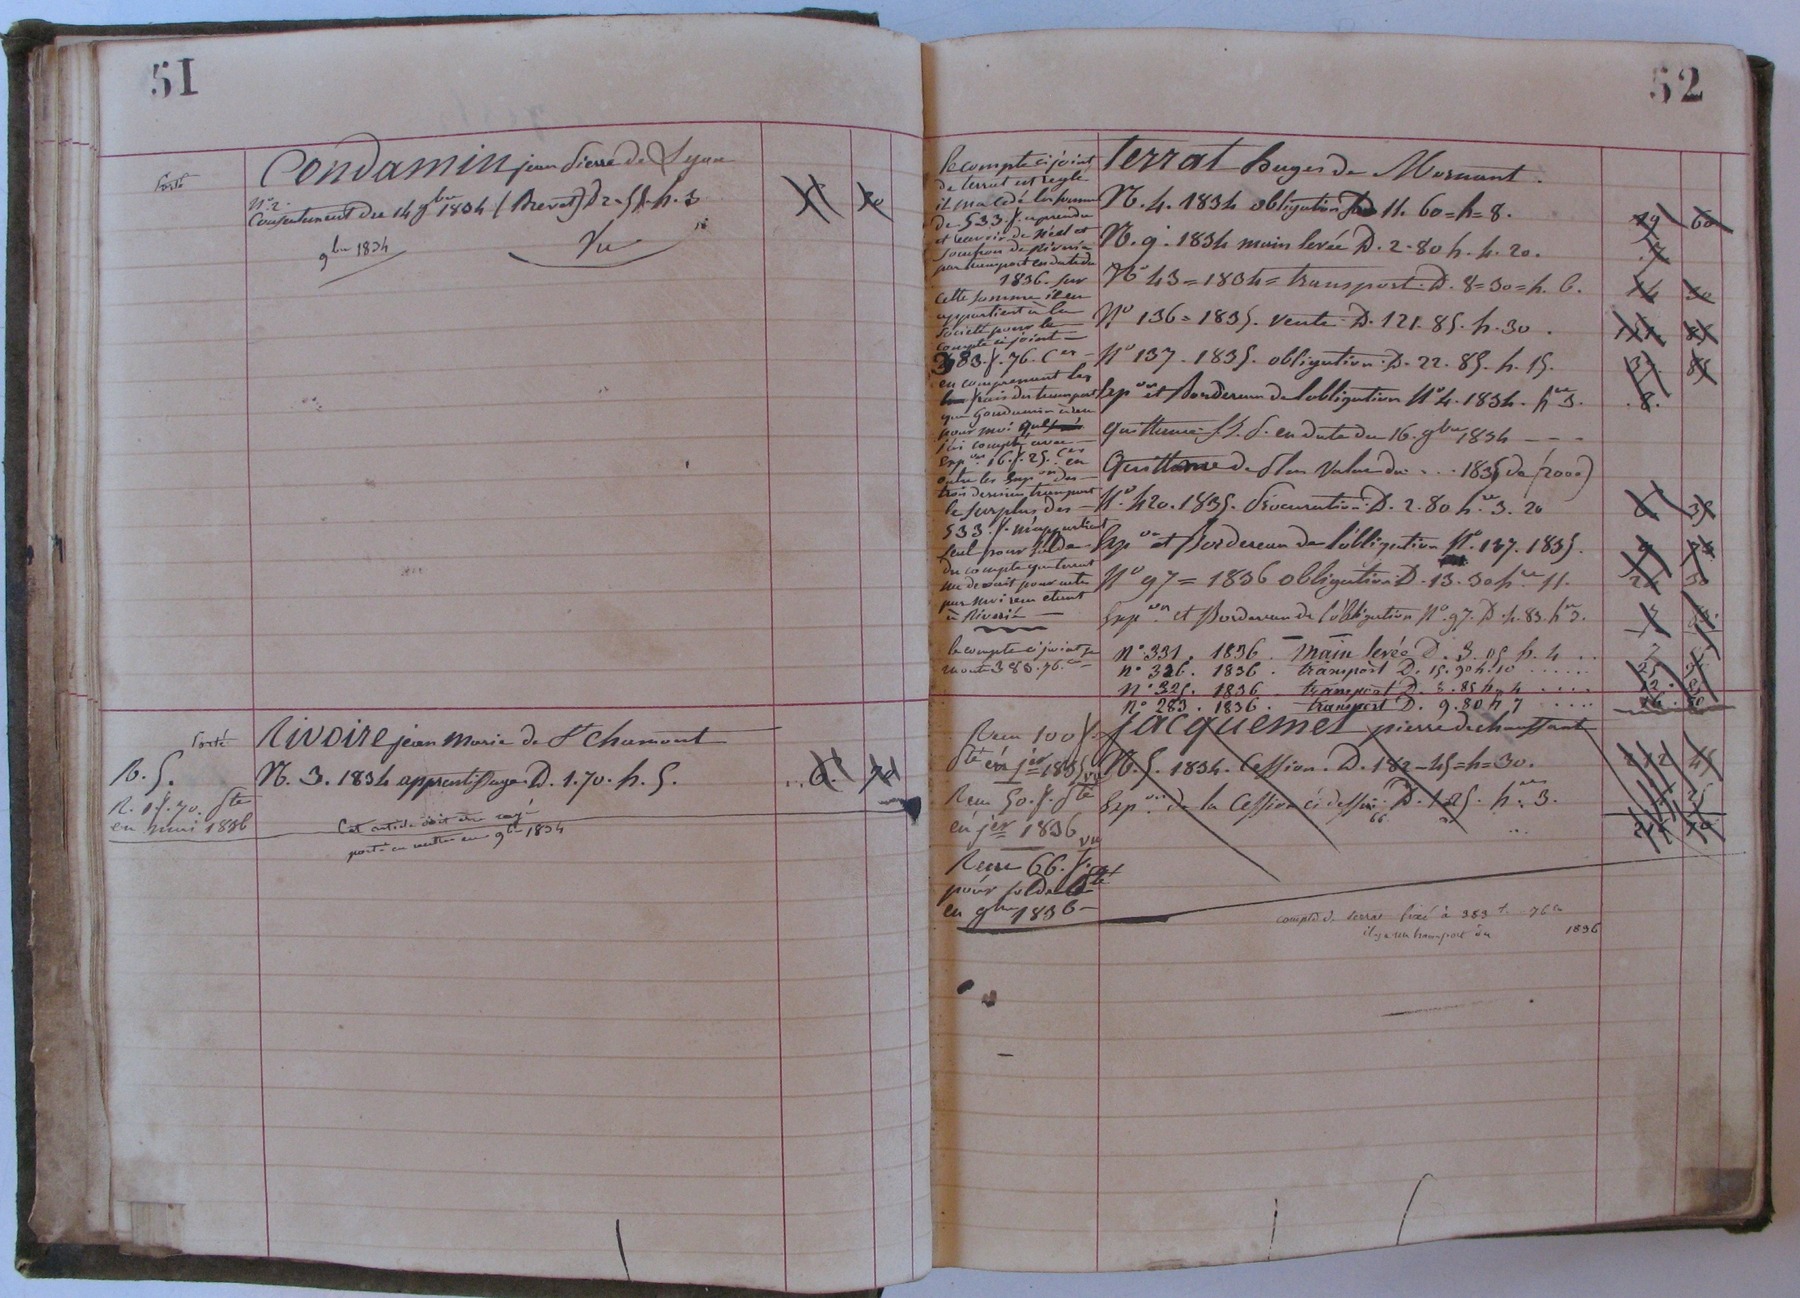 51
Porté
Condamin jean Pierre de Lyon
N° 2.
Consentement du 14 9bre 1834 (Brevet) D 2-51. h. 3
9bre 1834
Vu
Porté
Rivoire jean Marie de St Chamont
R. 5.
N. 3. 1834 apprentissage. D. 1.70. h. 5.
6. 70
R. 1 f. 70. Sté
en 1836
Cet article doit être rayé
porté en recette en 9bre 1834
52
le compte ci joint
de terrat est réglé
il m'a cédé la somme
de 533. f. à prendre
et recevoir de
par transport en date du
1836. sur
cette somme il en
appartient à la
société pour le
compte ci joint
383. f. 76. Ces
en comprenant les
frais des transport
que Goudamin
pour moi
j'ai compté avec
Exp on 16. f. 25. Ces en
outre les Exp on des
trois derniers transport
le surplus des
533. f. m'appartient
seul pour solde
du compte que terrat
me devait pour actes
par moi reçu étant
à Riverie
le compte ci joint se
monte 383. 76 ces
terrat huges de Mornant.
N. 4. 1834 obligation D 11. 60 = h = 8.
19 60
N. 9. 1834 main levée D. 2-80 h. 4. 20.
7
N° 43 = 1834 = transport. D. 8 = 30 = h. 6.
14 30
N° 136 = 1835. vente. D. 121. 85. h. 30.
151 85
N° 137. 1835. obligation. D. 22. 85. h. 15.
37 85
Exp on et Bordereau de l'obligation N° 4. 1834. hre 3.
8.
quittance S. S. P. en date du 16. 9bre 1834
Quittance de Plus Value du ... 1835 de (2000)
N° 420. 1835. Procuration. D. 2. 80 hre. 3. 20
Exp on et Bordereau de l'obligation N° 137. 1835.
N° 97 = 1836 obligation D. 13. 30 hre 11.
24 30
Exp on et Bordereau de l'obligation N° 97. D. h. 83. hre 3.
n° 331. 1836. Main levée D. 3. 05 h. 4
n° 326. 1836. transport D. 15. 90 h. 10
n° 325. 1836. transport D. 8. 85 h. 4
n° 283. 1836. transport D. 9. 80 h 7
16. 80
Reçu 100 f.
Sté en jer 1835 vu
Reçu 50. f. Sté
en jer 1836
vu
Reçu 66. f.
pour solde Sté
en 9bre 1836
jacquemet pierre de chaussant
N. 5. 1834. Cession. D. 182-45 = h = 30.
212 45
Exp on de la Cession ci dessus. D. 1. 25. hres 3.
4 25
216 70
compte d. terrat fixé à 383 f. 76 c
il y a un transport du 1836